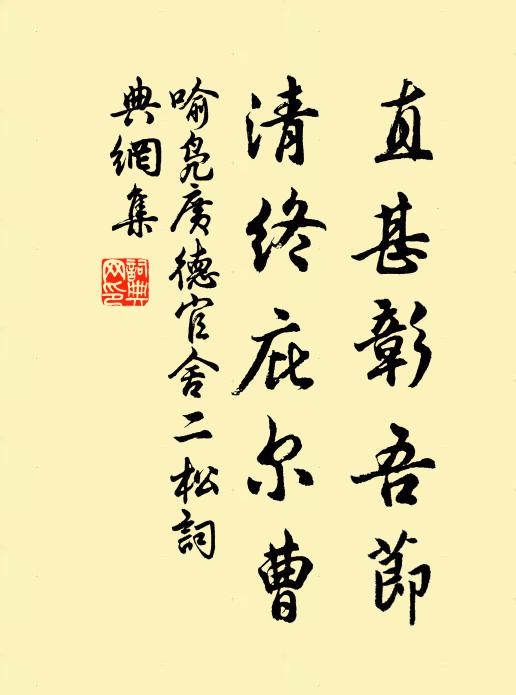 直甚彰吾節
清終庇尔曹
喻鳧廣德官舍二松詞
典網集
詞典
网印